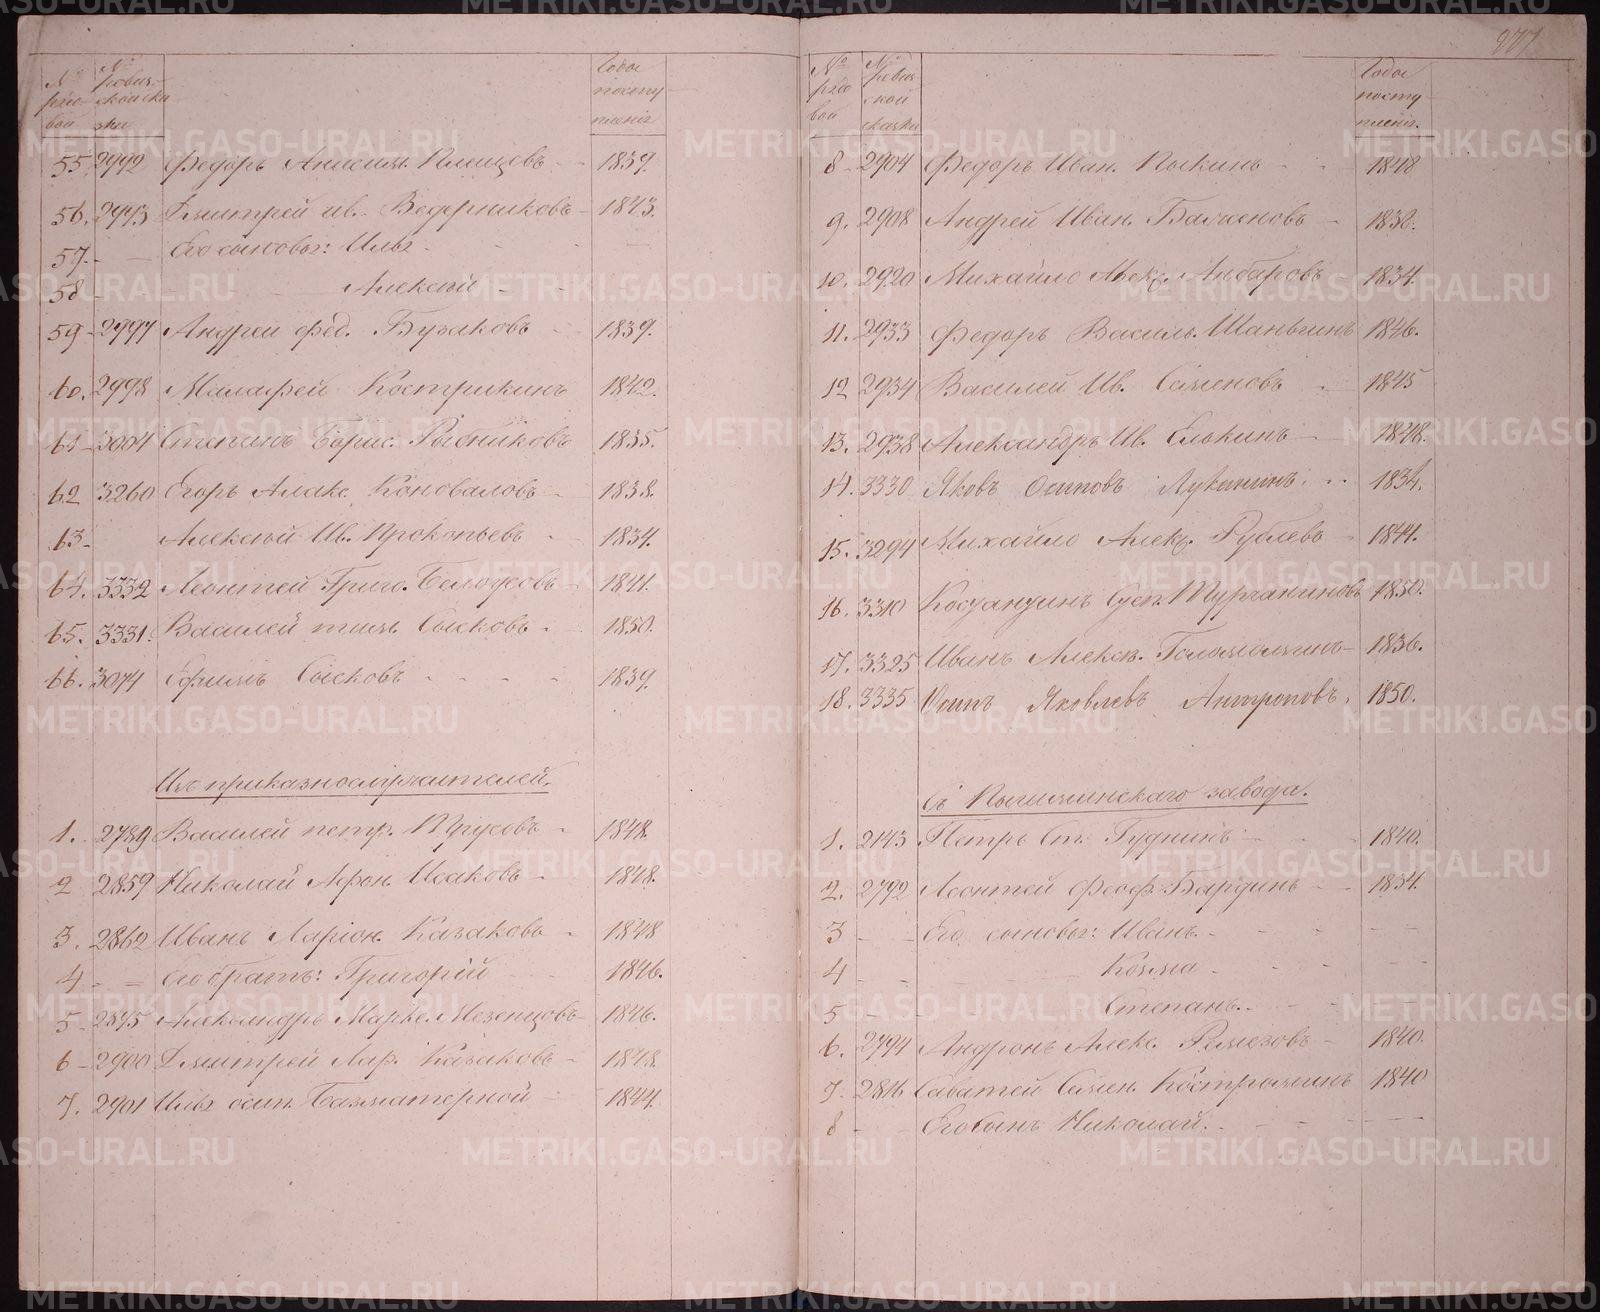 977
№ рядовой
№ ревизской сказки
Годы поступленія
55. 2992 Федоръ Анисим. Клещевъ - 1839.
56. 2993 Дмитрей ив. Ведерниковъ - 1843.
57. - - Его сыновья: Илья - -
58 - - Алексѣй - -
59 - 2997 Андрей Фед. Бузаковъ 1839.
60. 2998 Малафей Кострикинъ 1842.
61 - 3004 Степанъ Борис. Рыбниковъ 1835.
62 3260 Егоръ Алекс. Коноваловъ - 1838.
63 - Алексѣй Ив. Прокопьевъ - 1834.
64. 3332 Леонтей Григо. Белоусовъ - 1841.
65. 3331. Василей тим. Сысковъ - 1850.
66. 3074 Ефимъ Сысковъ - - - - 1839.
Изъ приказнослужителей.
1. 2789 Василей петр. Трусовъ - 1848.
2 2859 Николай Афон. Исаковъ - 1848.
3. 2862 Иванъ Ларіон. Казаковъ - 1848
4 - = Его братъ: Григорій 1846.
5 - 2875 Александръ Марке. Мезенцовъ - 1846.
6 - 2900 Дмитрей Лар. Казаковъ - 1848.
7. 2901 Илья осип. Бахматерной 1844.
№ рядовой
№ ревизской сказки
Годы поступленія.
8 - 2904 Федоръ Иван. - - 1848
9. 2908 Андрей Иван. - 1830.
10. 2920 Михайло Алекс. Анбаровъ - 1834.
11. 2933 Федоръ Василь. Шаньгинъ 1846.
12 2934 Василей Ив. Семеновъ - 1845
13. 2938 Александръ Ив. Елокинъ - 1848.
14. 3330 Яковъ Осиповъ Лукининъ. - - 1834.
15. 3294 Михайло Алекс. Рублевъ - 1844.
16. 3310 Костантинъ Турчаниновъ 1850.
17. 3325 Иванъ Алексѣ. Голомолзинъ - 1836.
18. 3335 Осипъ Яковлевъ Антроповъ. 1850.
Съ Пышминскаго завода.
1. 2143 Петръ Ст. Гуднинъ - - 1840.
2. 2792 Леонтей Феоф. Бардинъ - - 1834.
3 - - Его сыновья: Иванъ. - - -
4 - - Козма - - -
5 - - Степанъ. - - -
6. 2794 Андронъ Алекс. Ремезовъ - 1840.
7. 2816 Саватей Семен. Костроминъ 1840
8 - - Его сынъ Николай. - - -